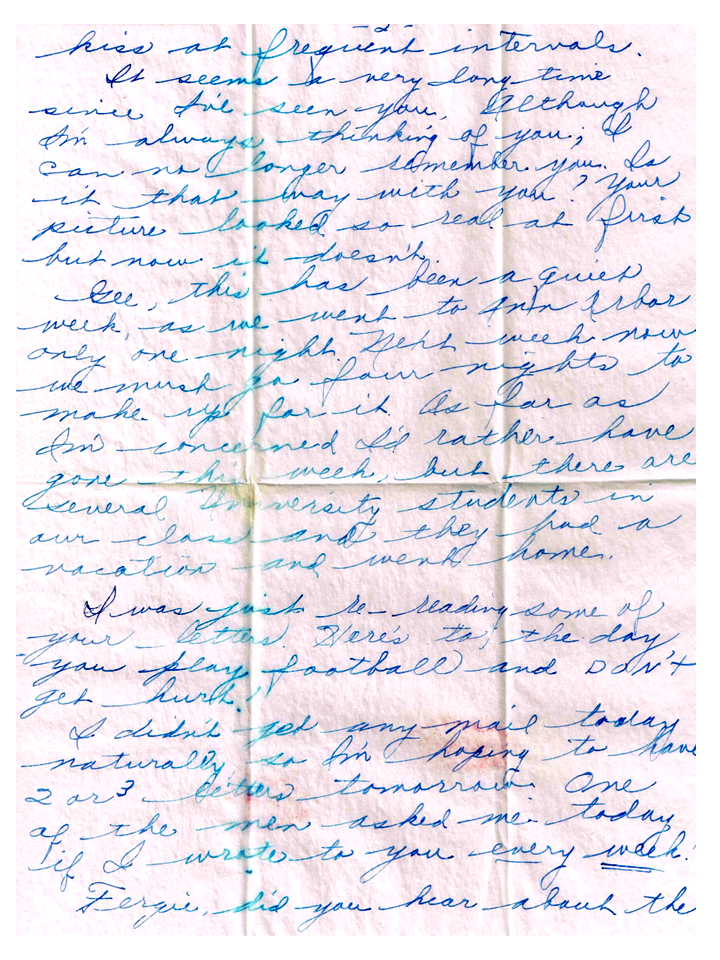 -2-
kiss at frequent intervals.
It seems a very long time
since I've seen you. Although
I'm always thinking of you, I
can no longer remember you. Is
it that way with you? Your
picture looked so real at first
but now it doesn't.
Gee, this has been a quiet
week, as we went to Ann Arbor
only one night. Next week now
we must go four nights to
make up for it. As far as
I'm concerned I'd rather have
gone this week, but there are
several University students in
our class and they had a
vacation and went home.
I was just re-reading some of
your letters. Here's to the day
you play football and DON'T
get hurt!
I didn't get any mail today
naturally so I'm hoping to have
2 or 3 letters tomorrow. One
of the men asked me today
if I wrote to you every week!
Fergie, did you hear about the